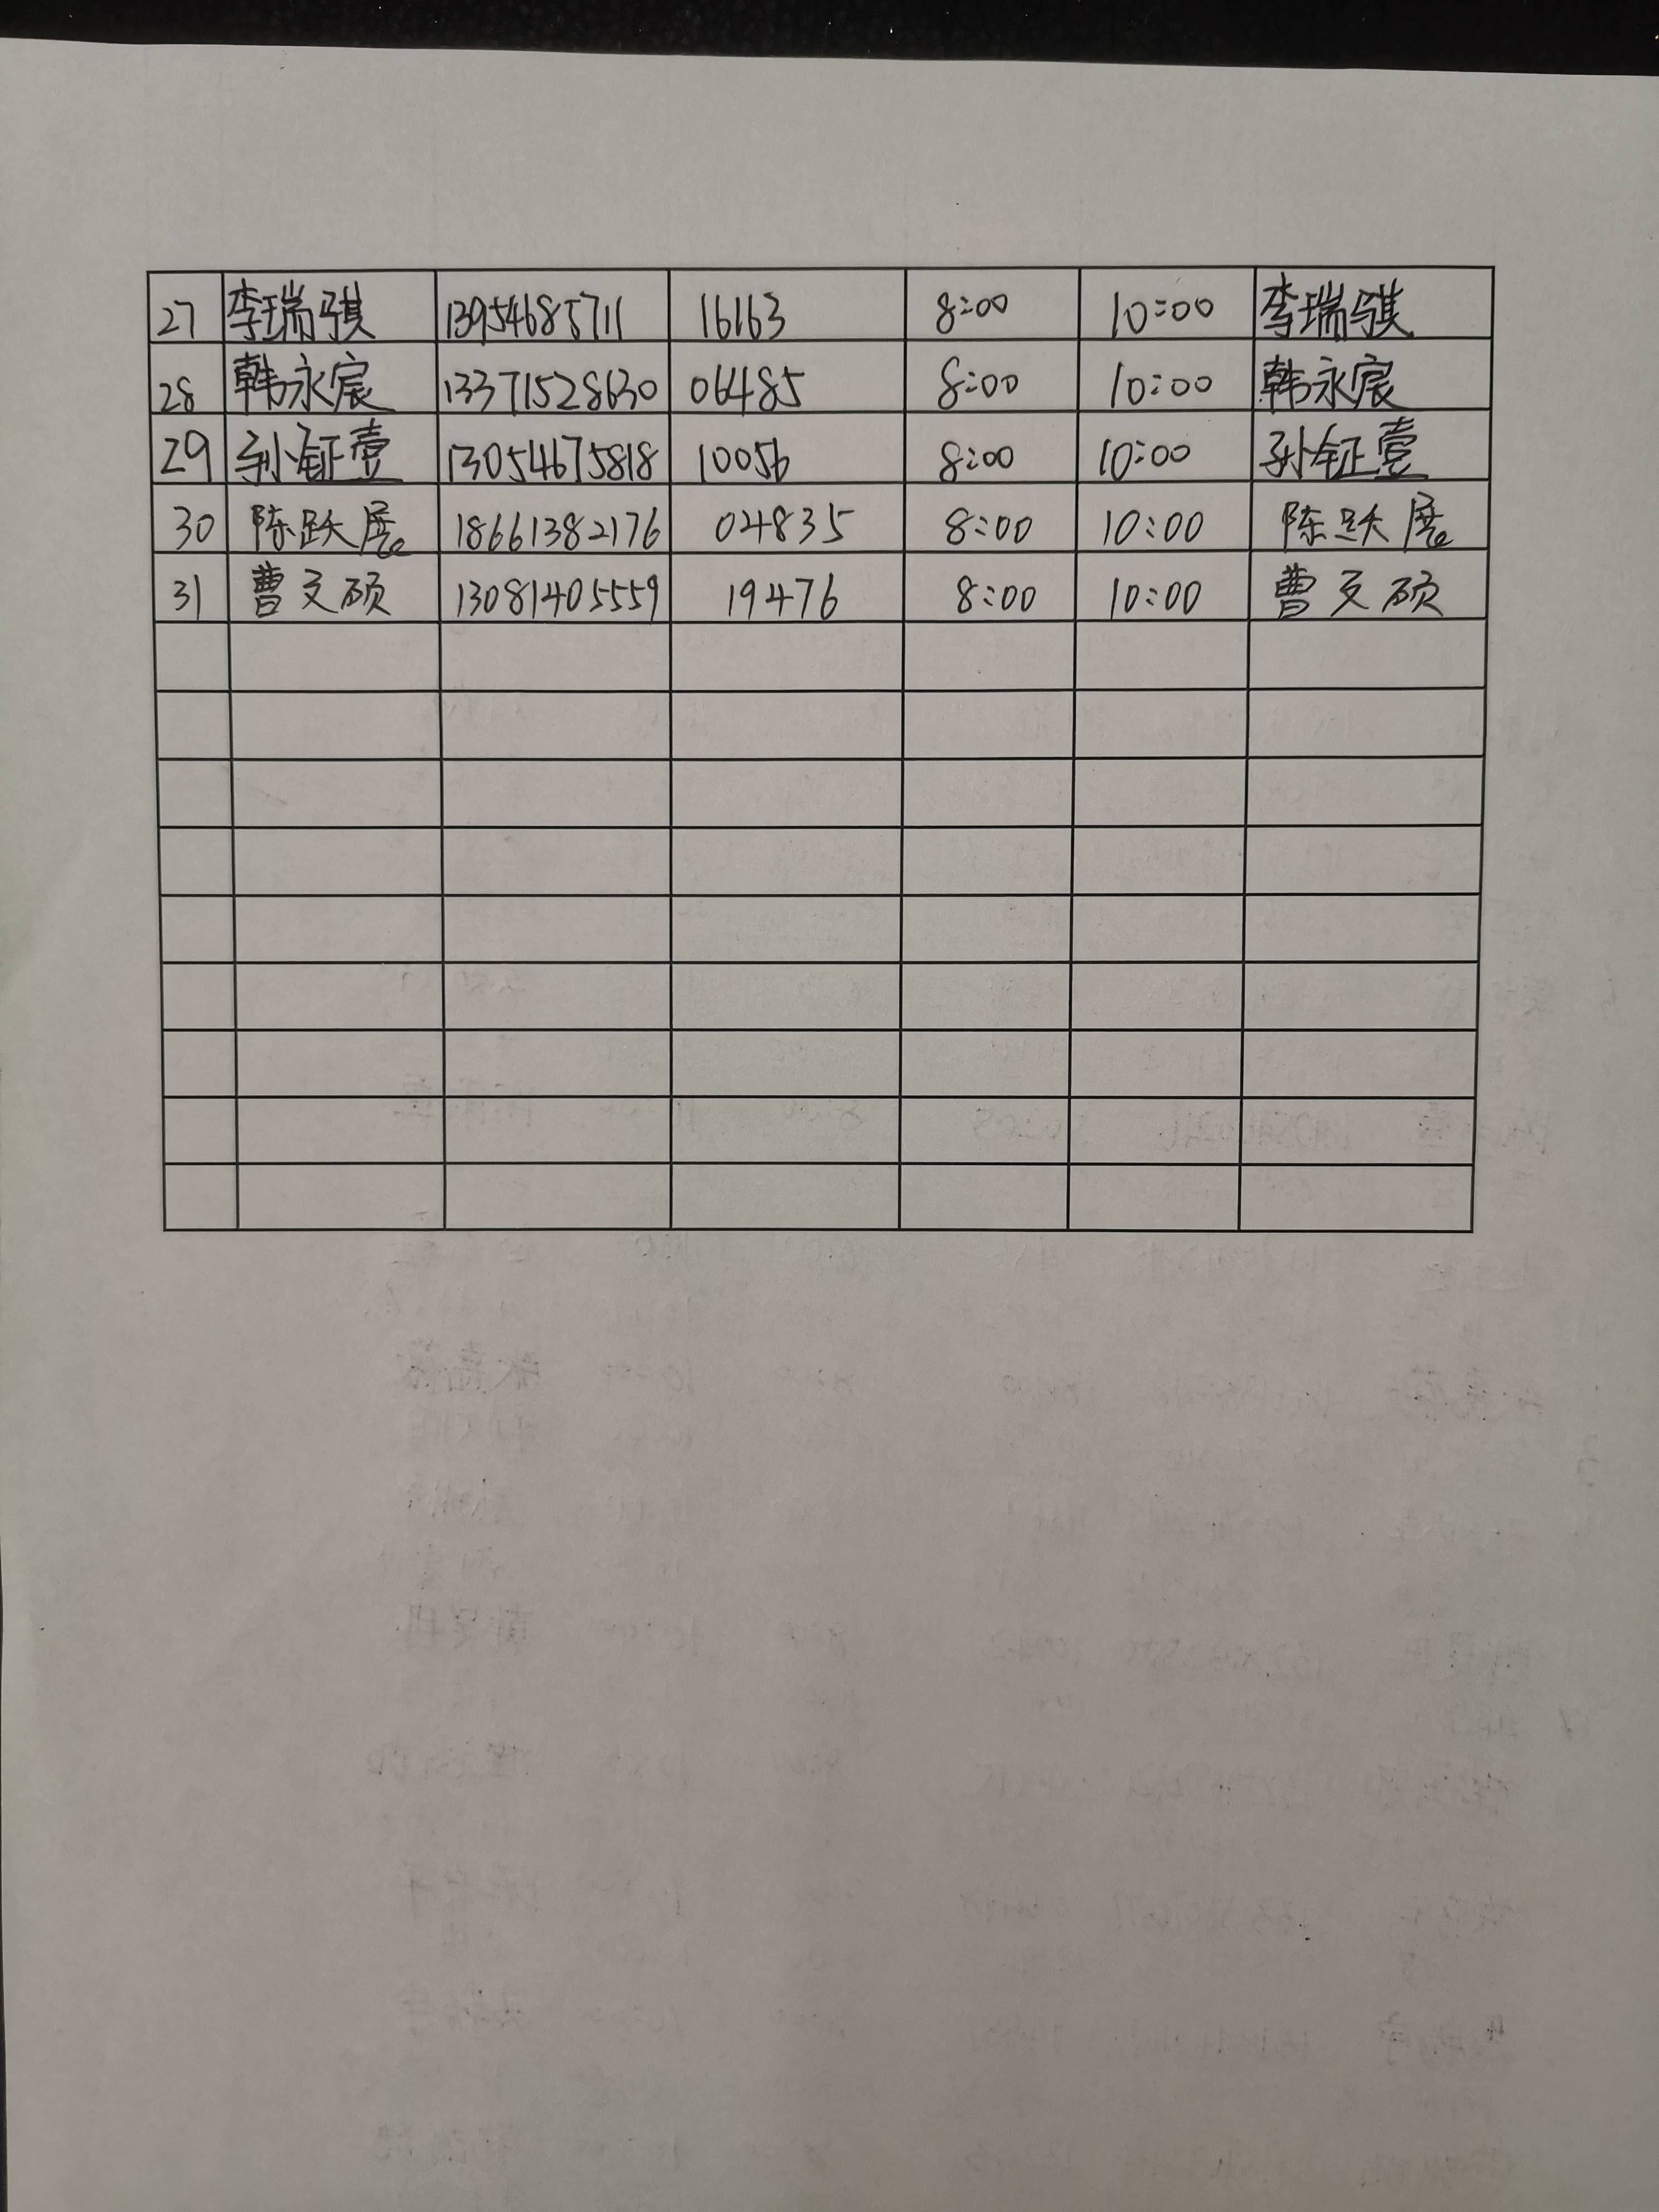 27 李瑞骐 13954685711 16163 8:00 10:00 李瑞骐
28 韩永宸 13371528630 06485 8:00 10:00 韩永宸
29 孙钲壹 13054675818 10056 8:00 10:00 孙钲壹
30 陈跃展 18661382176 04835 8:00 10:00 陈跃展
31 曹文硕 13081405559 19476 8:00 10:00 曹文硕